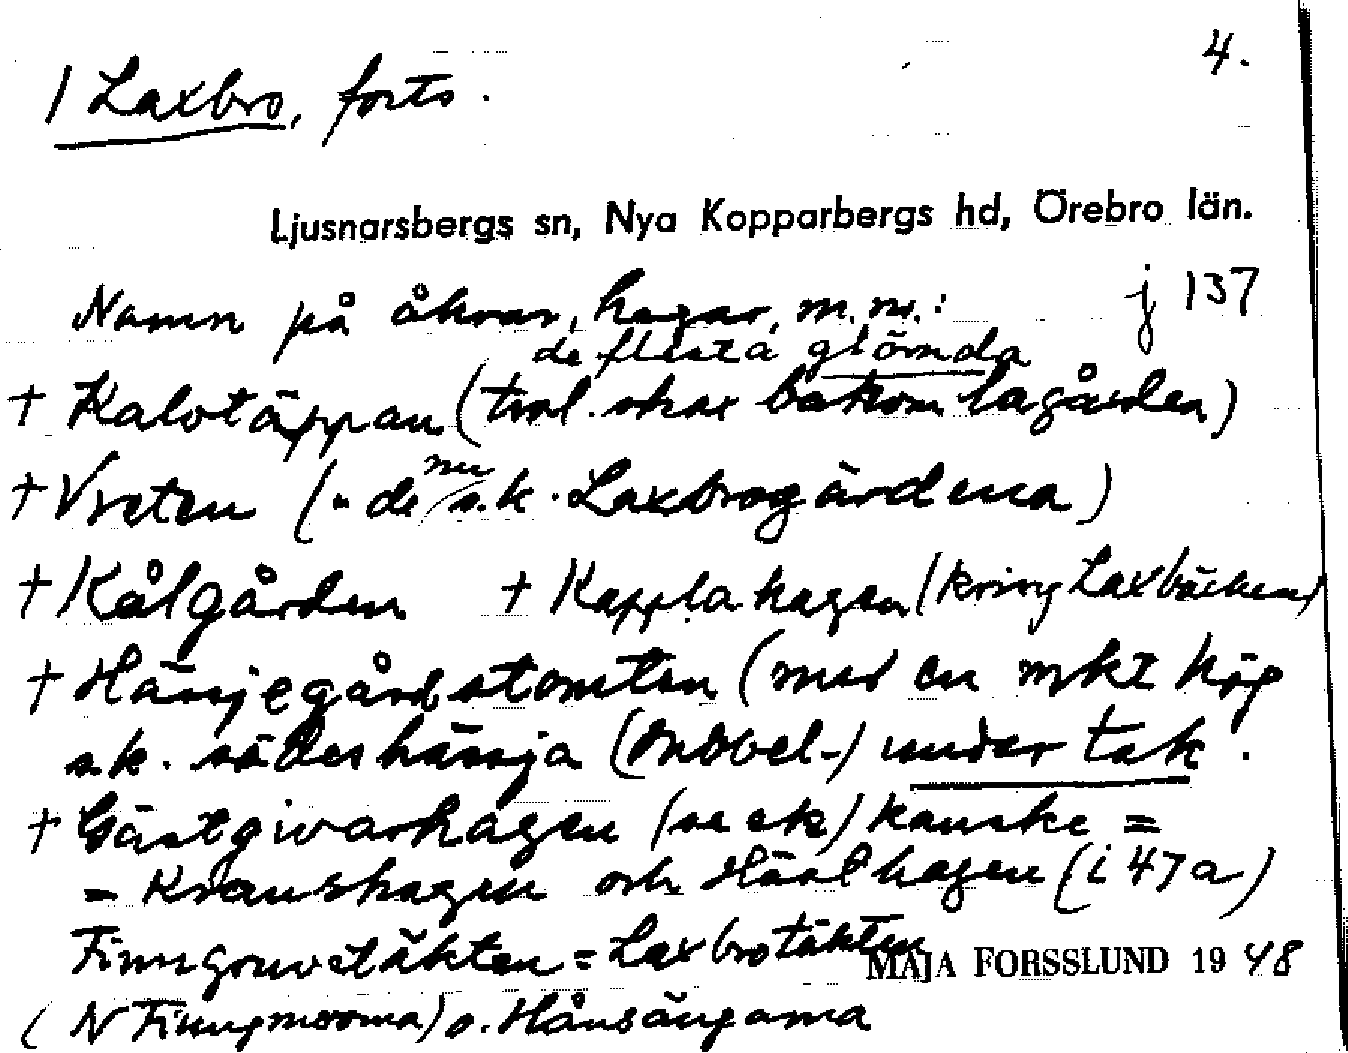 4.
1 Laxbro, forts.
Ljusnarsbergs sn, Nya Kopparbergs hd, Örebro län.
Namn på åkrar, hagar, m.m.: j 137
de flesta glömda
+ Kalvtäppan (trol. strax bakom lagården)
+ Vreten (" de nu s.k. Laxbrogärdena)
+ Kålgården + Kapplahagen (kring Laxbäcken)
+ Hässjegårdstomten (med en mkt hög
s.k. sädeshässja (Dubbel-) under tak.
+ Gästgivarhagen (se ek) kanske =
= Kranshagen och Häst hagen (i 47a)
Finngruvetäkten = Laxbrotäkten
MAJA FORSSLUND 1948
(N Finngmossarna) o. Hånsängarna